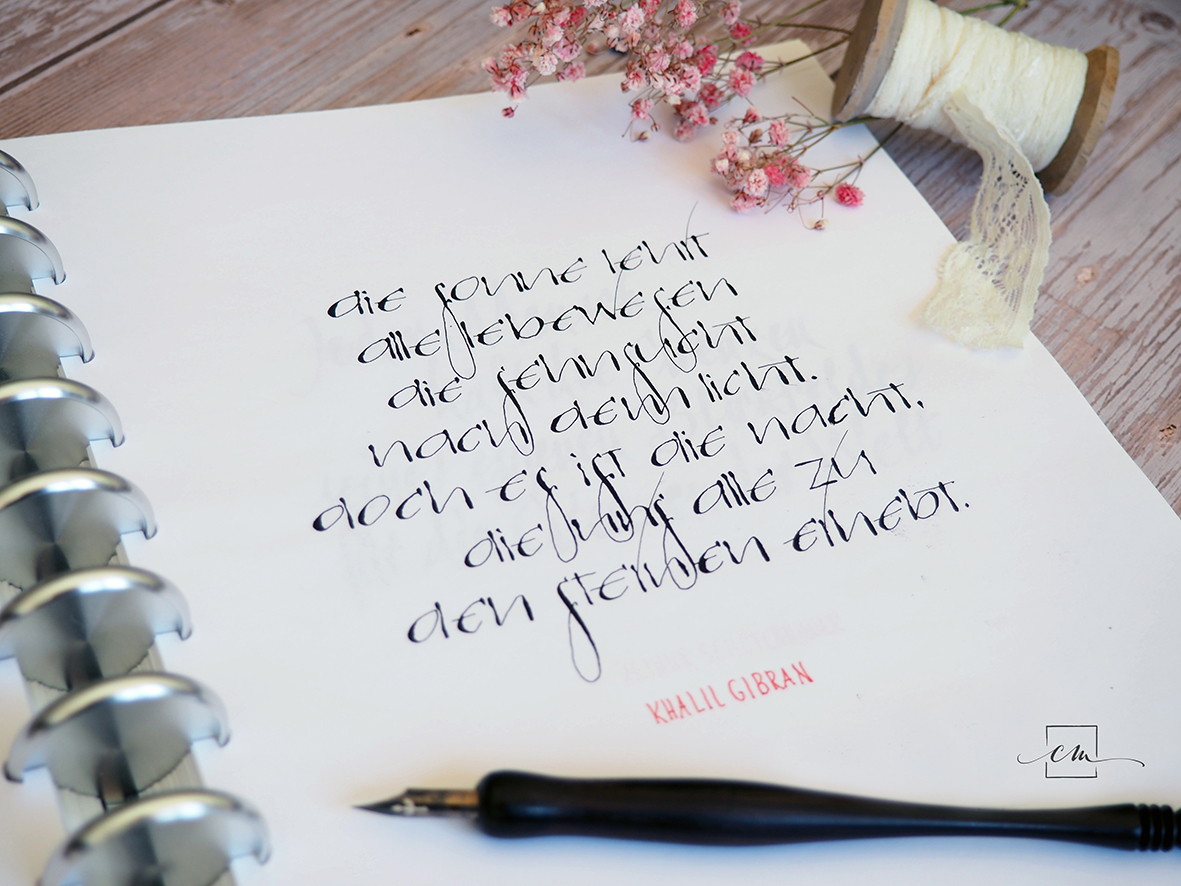 die sonne lehrt
alle lebewesen
die sehnsucht
nach dem licht.
doch es ist die nacht,
die uns alle zu
den sternen erhebt.
KHALIL GIBRAN
cm